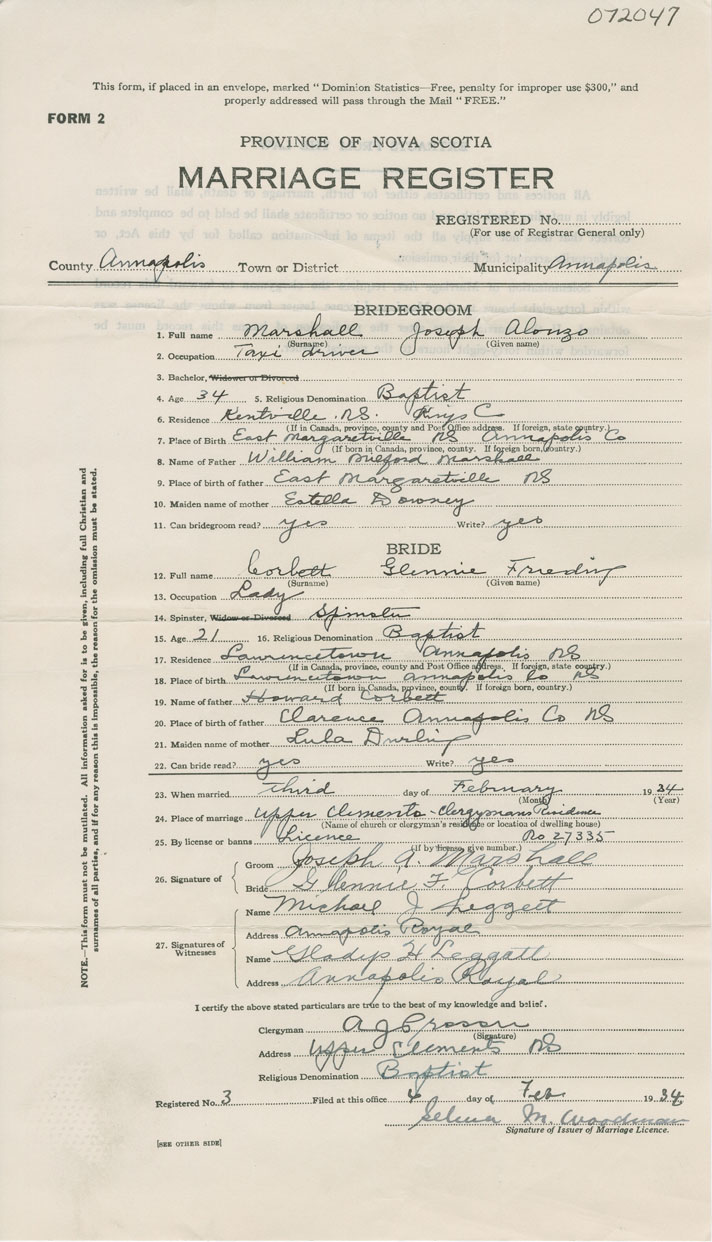 072047
This form, if placed in an envelope, marked "Dominion Statistics—Free, penalty for improper use $300," and
properly addressed will pass through the Mail "FREE."
FORM 2
PROVINCE OF NOVA SCOTIA
MARRIAGE REGISTER
REGISTERED No.
(For use of Registrar General only)
County Annapolis Town or District Municipality Annapolis
BRIDEGROOM
1. Full name Marshall Joseph Alonzo
(Surname) (Given name)
2. Occupation Taxi driver
3. Bachelor, Widower or Divorced
4. Age 34 5. Religious Denomination Baptist
6. Residence Kentville NS. Kings C
(If in Canada, province, county and Post Office address. If foreign, state country.)
7. Place of Birth East Margaretville NS Annapolis Co
(If born in Canada, province, county. If foreign born, country.)
8. Name of Father William Milford Marshall
9. Place of birth of father East Margaretville NS
10. Maiden name of mother Estella Downey
11. Can bridegroom read? yes Write? yes
BRIDE
12. Full name Corbett Glennie
(Surname) (Given name)
13. Occupation Lady
14. Spinster, Widow or Divorced Spinster
15. Age 21 16. Religious Denomination Baptist
17. Residence Lawrencetown Annapolis NS
(If in Canada, province, county and Post Office address. If foreign, state country.)
18. Place of birth Lawrencetown Annapolis Co NS
(If born in Canada, province, county. If foreign born, country.)
19. Name of father Howard Corbett
20. Place of birth of father Clarence Annapolis Co NS
21. Maiden name of mother Lula Durling
22. Can bride read? yes Write? yes
23. When married third day of February 1934
(Month) (Year)
24. Place of marriage Upper Clements - Clergymans Residence
(Name of church or clergyman's residence or location of dwelling house)
25. By license or banns Licence No 27335
(If by license, give number.)
26. Signature of
Groom Joseph A. Marshall
Bride Glennie F. Corbett
27. Signatures of Witnesses
Name Michael J Leggett
Address Annapolis Royal
Name Gladys H Leggatt
Address Annapolis Royal
I certify the above stated particulars are true to the best of my knowledge and belief.
Clergyman A J Prosser
(Signature)
Address Upper Clements NS
Religious Denomination Baptist
Registered No. 3 Filed at this office 4 day of Feb 1934
Selina M. Woodman
Signature of Issuer of Marriage Licence.
[SEE OTHER SIDE]
NOTE.—This form must not be mutilated. All information asked for is to be given, including full Christian and
surnames of all parties, and if for any reason this is impossible, the reason for the omission must be stated.